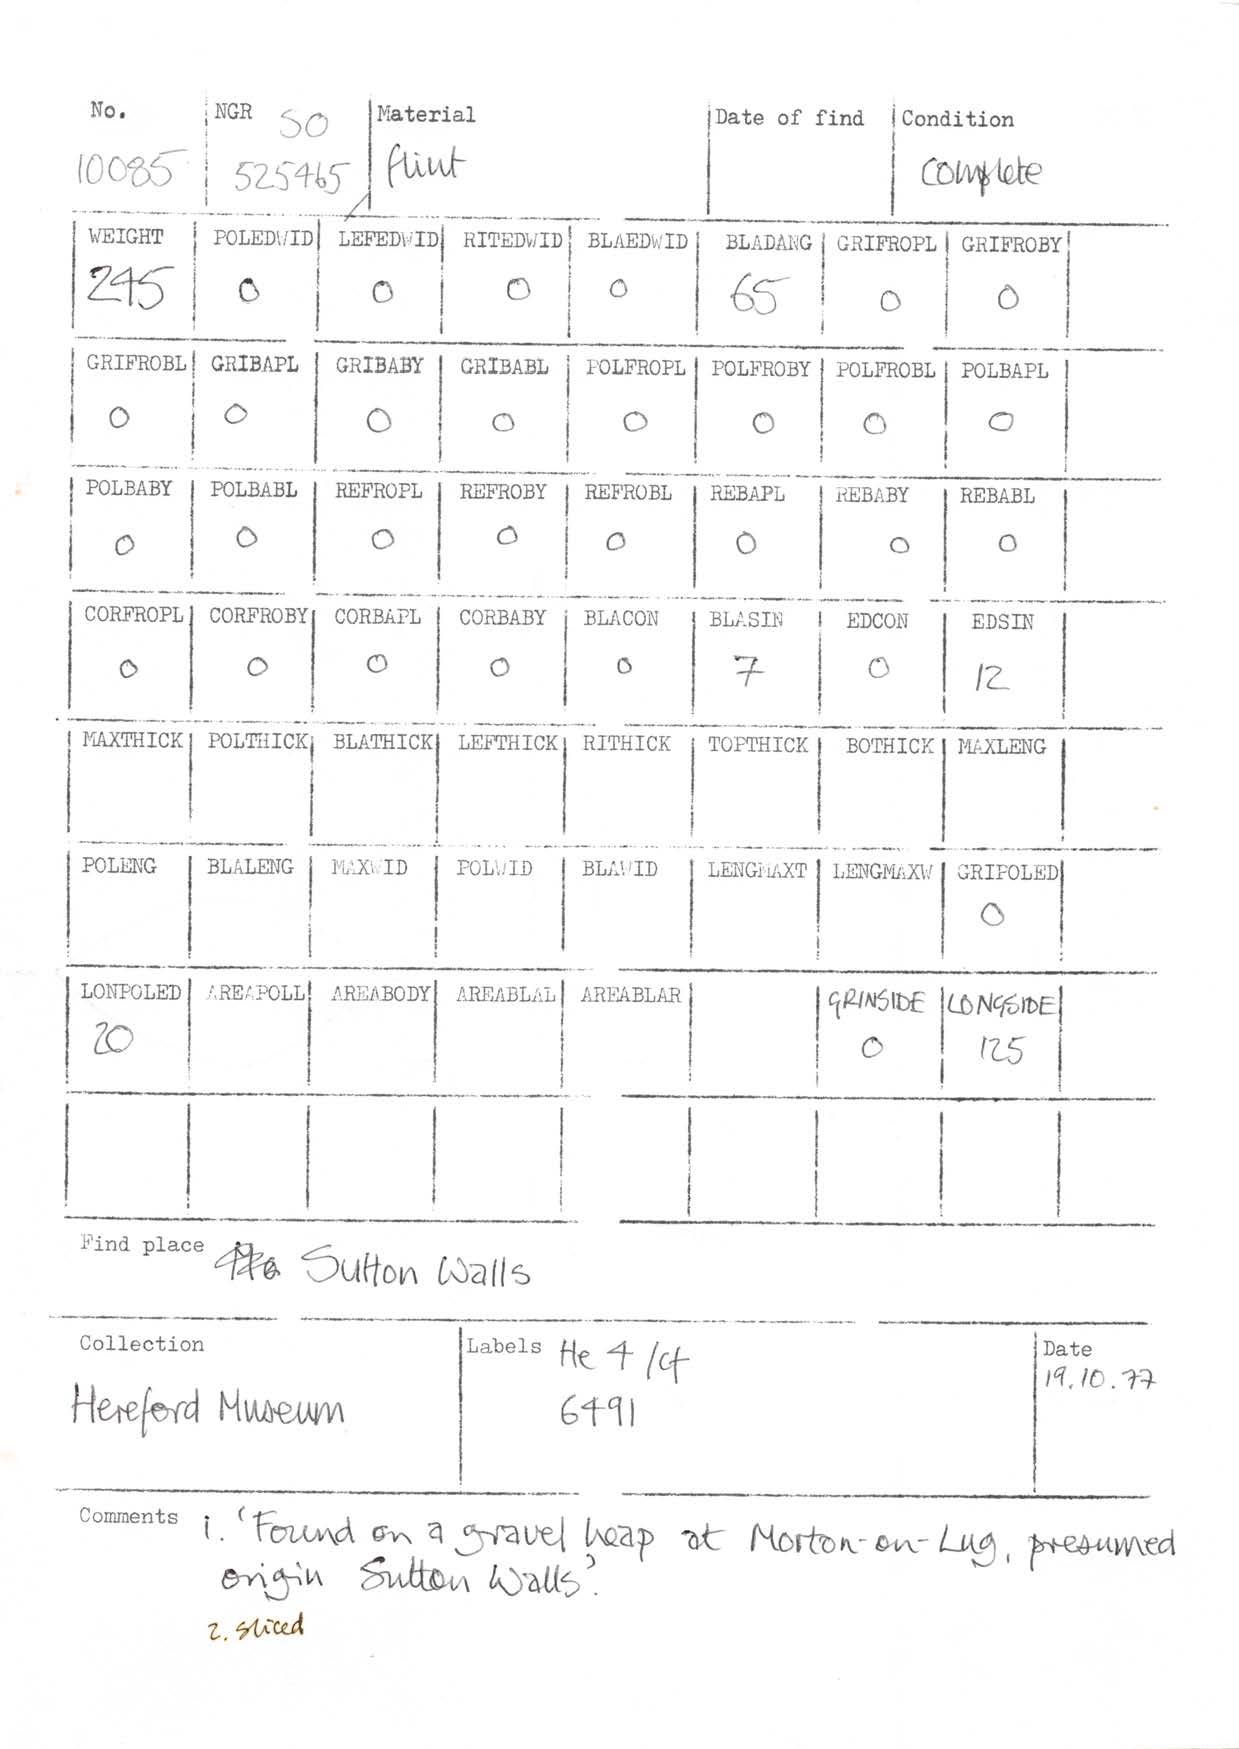 No. NGR SO Material Date of find Condition
10085 525465 flint complete
WEIGHT POLEDWID LEFEDWID RITEDWID BLAEDWID BLADANG GRIFROPL GRIFROBY
245 0 0 0 0 65 0 0
GRIFROBL GRIBAPL GRIBABY GRIBABL POLFROPL POLFROBY POLFROBL POLBAPL
0 0 0 0 0 0 0 0
POLBABY POLBABL REFROPL REFROBY REFROBL REBAPL REBABY REBABL
0 0 0 0 0 0 0 0
CORFROPL CORFROBY CORBAPL CORBABY BLACON BLASIN EDCON EDSIN
0 0 0 0 0 7 0 12
MAXTHICK POLTHICK BLATHICK LEFTHICK RITHICK TOPTHICK BOTHICK MAXLENG
POLENG BLALENG MAXWID POLWID BLAWID LENGMAXT LENGMAXW GRIPOLED
0
LONPOLED AREAPOLL AREABODY AREABLAL AREABLAR GRINSIDE LONGSIDE
20 0 125
Find place Sutton Walls
Collection Labels He 4 /cf Date
19.10.77
Hereford Museum 6491
Comments 1. 'Found on a gravel heap at Morton-on-Lug, presumed
origin Sutton Walls'.
2. sliced